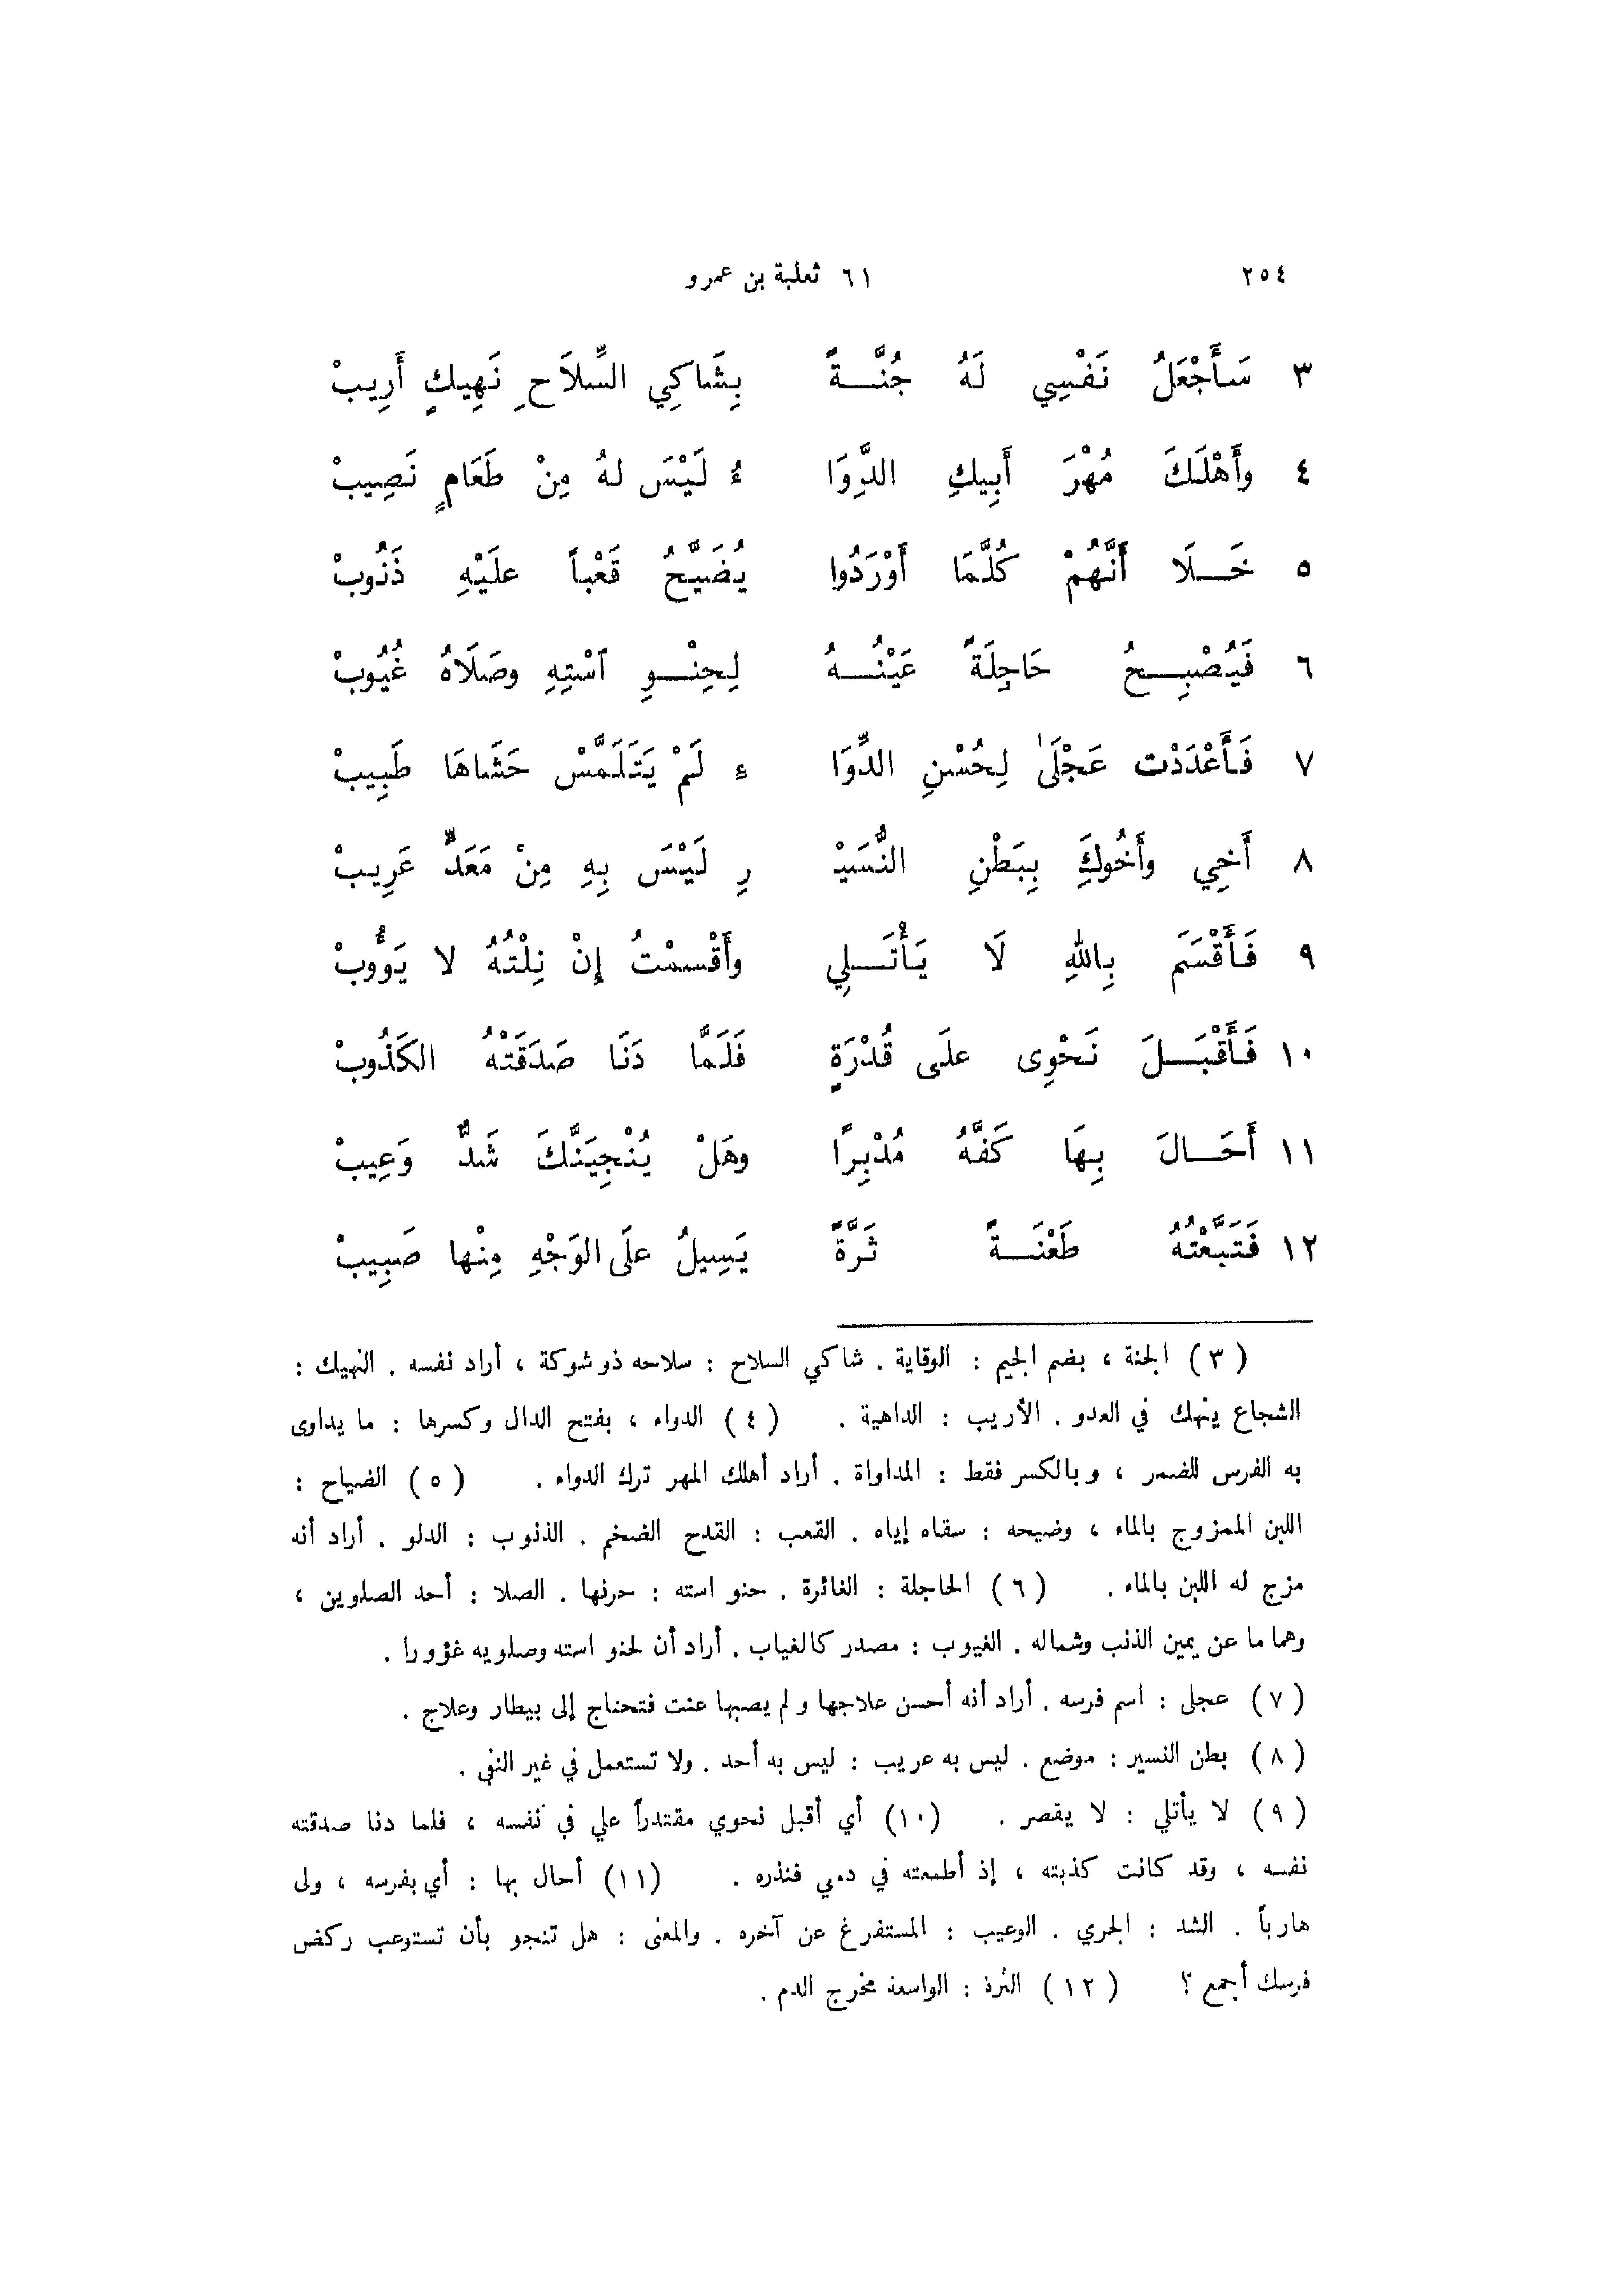 ٢٥٤ ٦١ ثعلبة بن عمرو
٣ سَأَجْعَلُ نَفْسِي لَهُ جُنَّةً بِشَاكِي السِّلاَحِ نَهِيكٍ أَرِيبْ
٤ وأَهْلَكَ مُهْرَ أَبِيكِ الدَّوَا ءُ لَيْسَ لهُ مِنْ طَعَامٍ نَصِيبْ
٥ خَلَا أَنَّهُمْ كُلَّمَا أَوْرَدُوا يُضَيَّحُ قَعْباً عليْهِ ذَنُوبْ
٦ فَيُصْبِحُ حَاجِلَةً عَيْنُهُ لِحِنْوِ آسْتِهِ وصَلَاهُ غُيُوبْ
٧ فَأَعْدَدْت عَجْلَىٰ لِحُسْنِ الدِّوَا ءِ لَمْ يَتَلَمَّسْ حَشَاهَا طَبِيبْ
٨ أَخِي وأَخُوكِ بِبَطْنِ النُّسَيْ رِ لَيْسَ بِهِ مِنْ مَعَدٍّ عَرِيبْ
٩ فَأَقْسَمَ بِاللهِ لَا يَأْتَلِي وأَقْسمْتُ إِنْ نِلْتُهُ لا يَوُوبْ
١٠ فَأَقْبَلَ نَحْوِى علَى قُدْرَةٍ فَلَمَّا دَنَا صَدَقَتْهُ الكَذُوبْ
١١ أَحَالَ بِهَا كَفَّهُ مُدْبِرًا وهَلْ يُنْجِيَنَّكَ شَدٌّ وَعِيبْ
١٢ فَتَبَّعْتُهُ طَعْنَةً ثَرَّةً يَسِيلُ علَى الوَجْهِ مِنْها صَبِيبْ
(٣) الجنة ، بضم الجيم : الوقاية . شاكي السلاح : سلاحه ذو شوكة ، أراد نفسه . النهيك :
الشجاع ينهك في العدو . الأريب : الداهية . (٤) الدواء ، بفتح الدال وكسرها : ما يداوى
به الفرس للضمر ، وبالكسر فقط : المداواة . أراد أهلك المهر ترك الدواء . (٥) الضياح :
اللبن الممزوج بالماء ، وضيحه : سقاه إياه . القعب : القدح الضخم . الذنوب : الدلو . أراد أنه
مزج له اللبن بالماء . (٦) الحاجلة : الغائرة . حنو استه : حرفها . الصلا : أحد الصلوين ،
وهما ما عن يمين الذنب وشماله . الغيوب : مصدر كالغياب . أراد أن لحنو استه وصلويه غؤورا .
(٧) عجلى : اسم فرسه . أراد أنه أحسن علاجها ولم يصبها عنت فتحتاج إلى بيطار وعلاج .
(٨) بطن النسير : موضع . ليس به عريب : ليس به أحد . ولا تستعمل في غير النفى .
(٩) لا يأتلي : لا يقصر . (١٠) أي أقبل نحوي مقتدراً علي في نفسه ، فلما دنا صدقته
نفسه ، وقد كانت كذبته ، إذ أطمعته في دمي فنذره . (١١) أحال بها : أي بفرسه ، ولى
هارباً . الشد : الجري . الوعيب : المستفرغ عن آخره . والمعنى : هل تنجو بأن تستوعب ركض
فرسك أجمع ؟ (١٢) الثرة : الواسعة مخرج الدم .